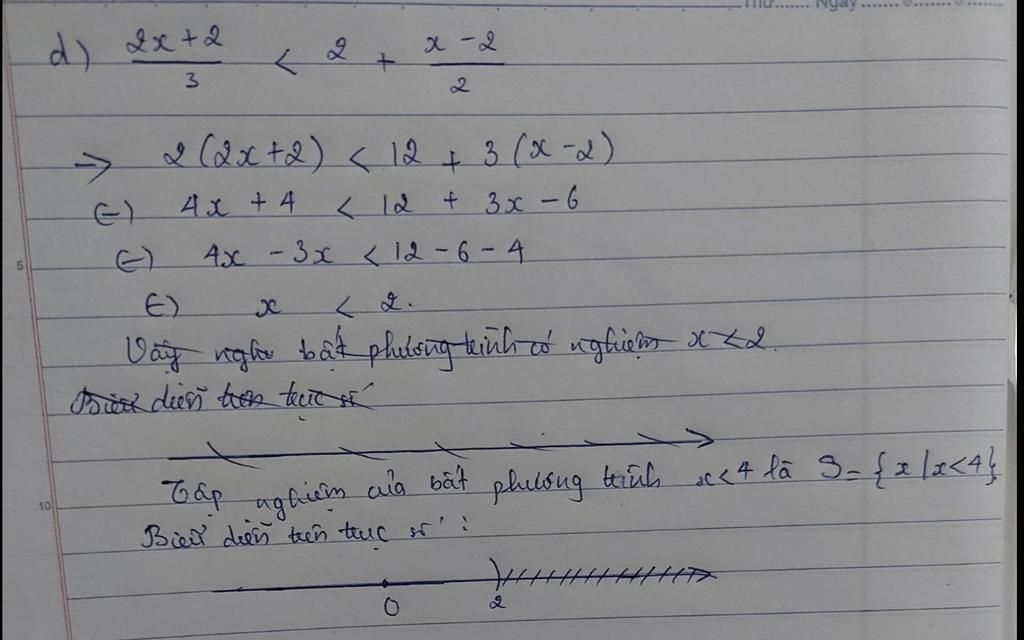 Thứ....... Ngày.......
d) \frac{2x+2}{3} < 2 + \frac{x-2}{2}
→ 2(2x+2) < 12 + 3(x-2)
(=) 4x + 4 < 12 + 3x - 6
5
(=) 4x - 3x < 12 - 6 - 4
(=) x < 2.
Vậy nghi bất phương trình có nghiệm x < 2
Biểu diễn trên trục số
Tập nghiệm của bất phương trình x<4 là S={x|x<4}
10
Biểu diễn trên trục số :
0 2